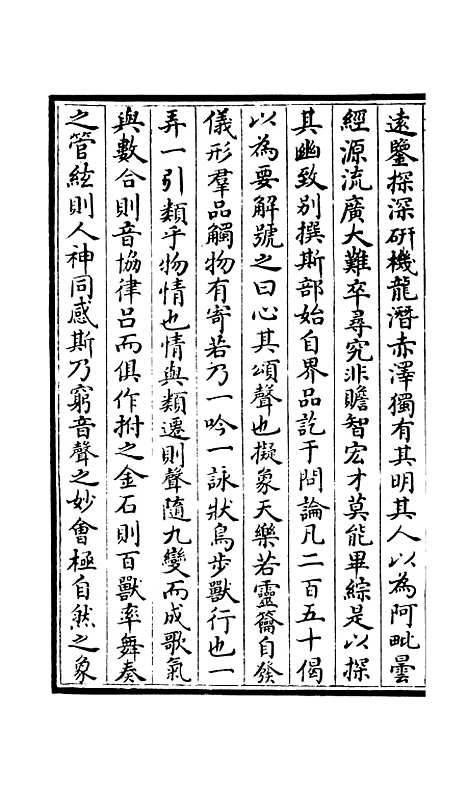 遠鑒探深研機龍潛赤澤獨有其明其人以為阿毗曇
經源流廣大難卒尋究非贍智宏才莫能畢綜是以探
其幽致別撰斯部始自界品訖于問論凡二百五十偈
以為要解號之曰心其頌聲也擬象天樂若靈籥自發
儀形羣品觸物有寄若乃一吟一詠狀鳥步獸行也一
弄一引類乎物情也情與類遷則聲隨九變而成歌氣
與數合則音協律吕而俱作拊之金石則百獸率舞奏
之管絃則人神同感斯乃窮音聲之妙會極自然之象